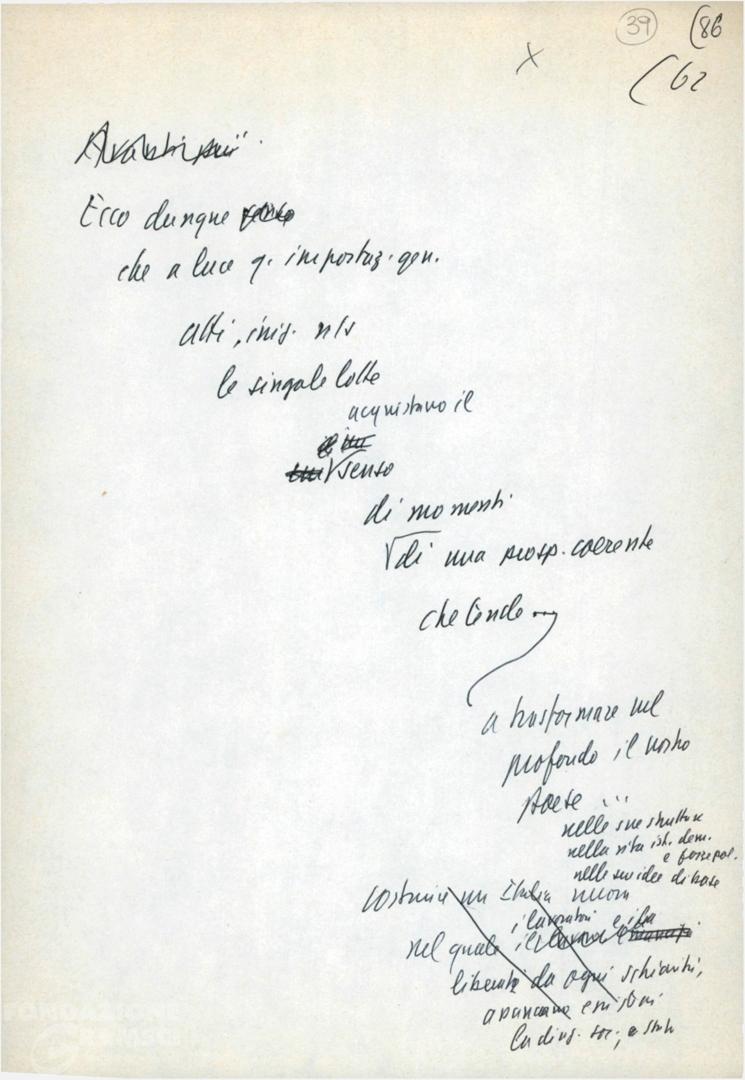 39
(86
X
(62
Avanti più
Ecco dunque
che a luce q. impostaz. gen.
atti, iniz. ns
le singole lotte
acquistano il
senso
di momenti
di una prosp. coerente
che tende
a trasformare nel
profondo il nostro
Paese ...
nelle sue strutture
nella vita ist. dem.
e forze pol.
nelle sue idee di base
costruire un Italia nuova
i lavoratori e
nel quale il
liberati da ogni schiavitù,
avanzano
la direz. soc. e
FONDAZIONE
GRAMSCI